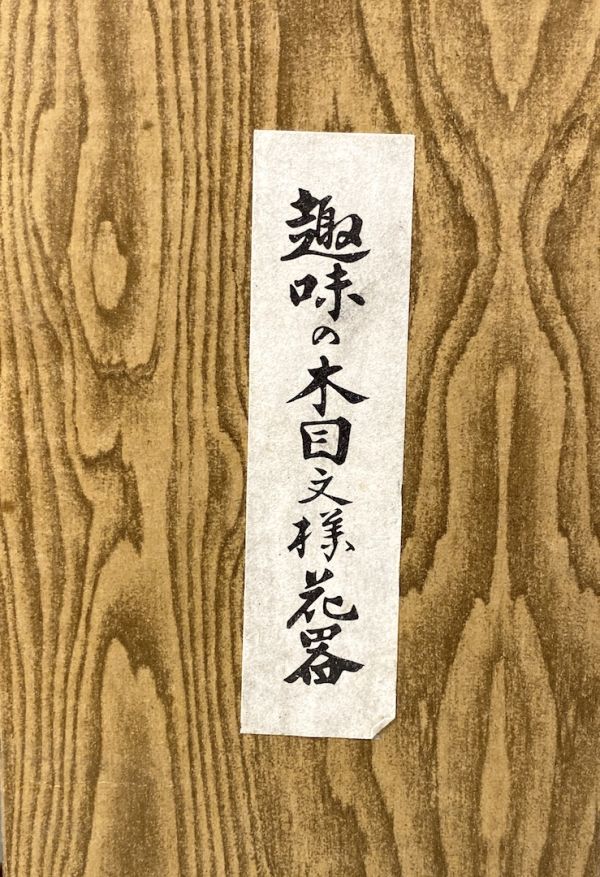 趣味の木目文様花器